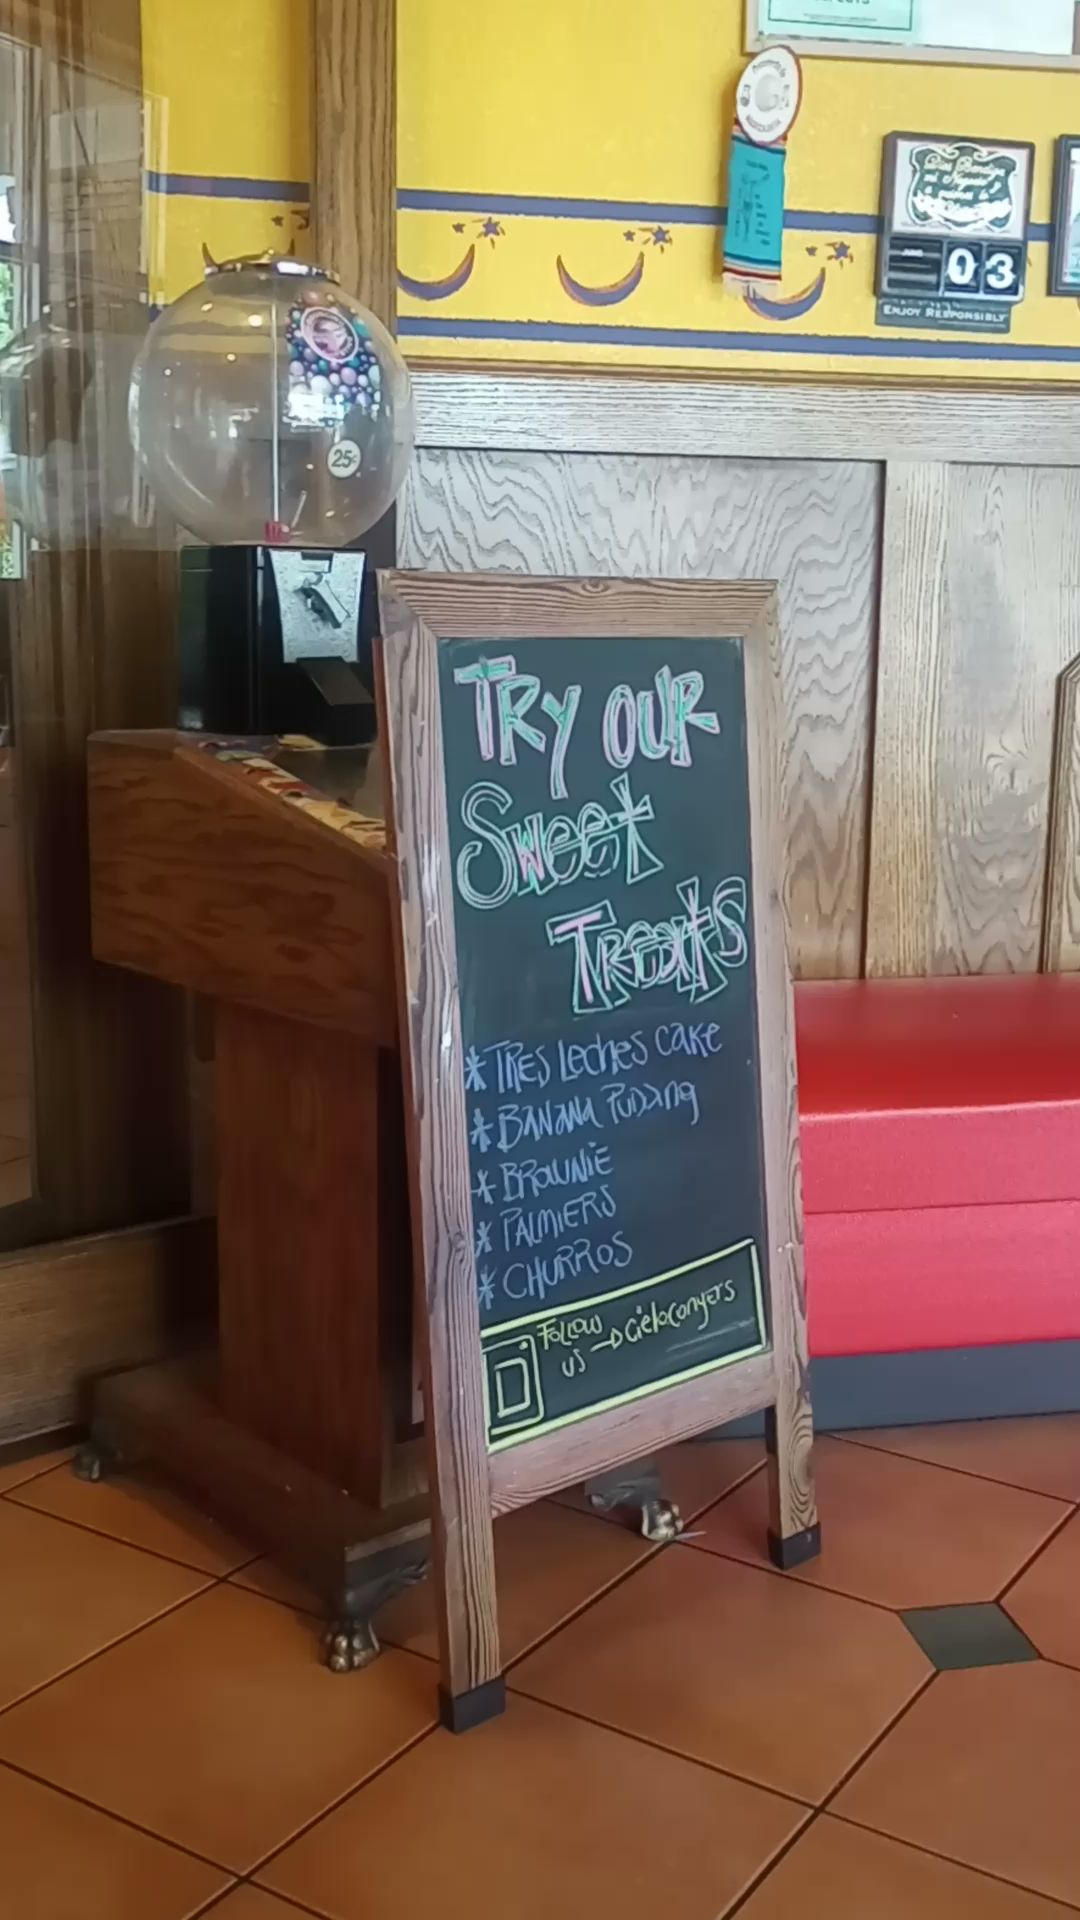 03
ENJOY RESPONSIBLY
25¢
TRY OUR
Sweet
Treats
* TRES Leches cake
* BANANA PUDDING
* BROWNIE
* PALMIERS
* CHURROS
FOLLOW
US → cieloconyers